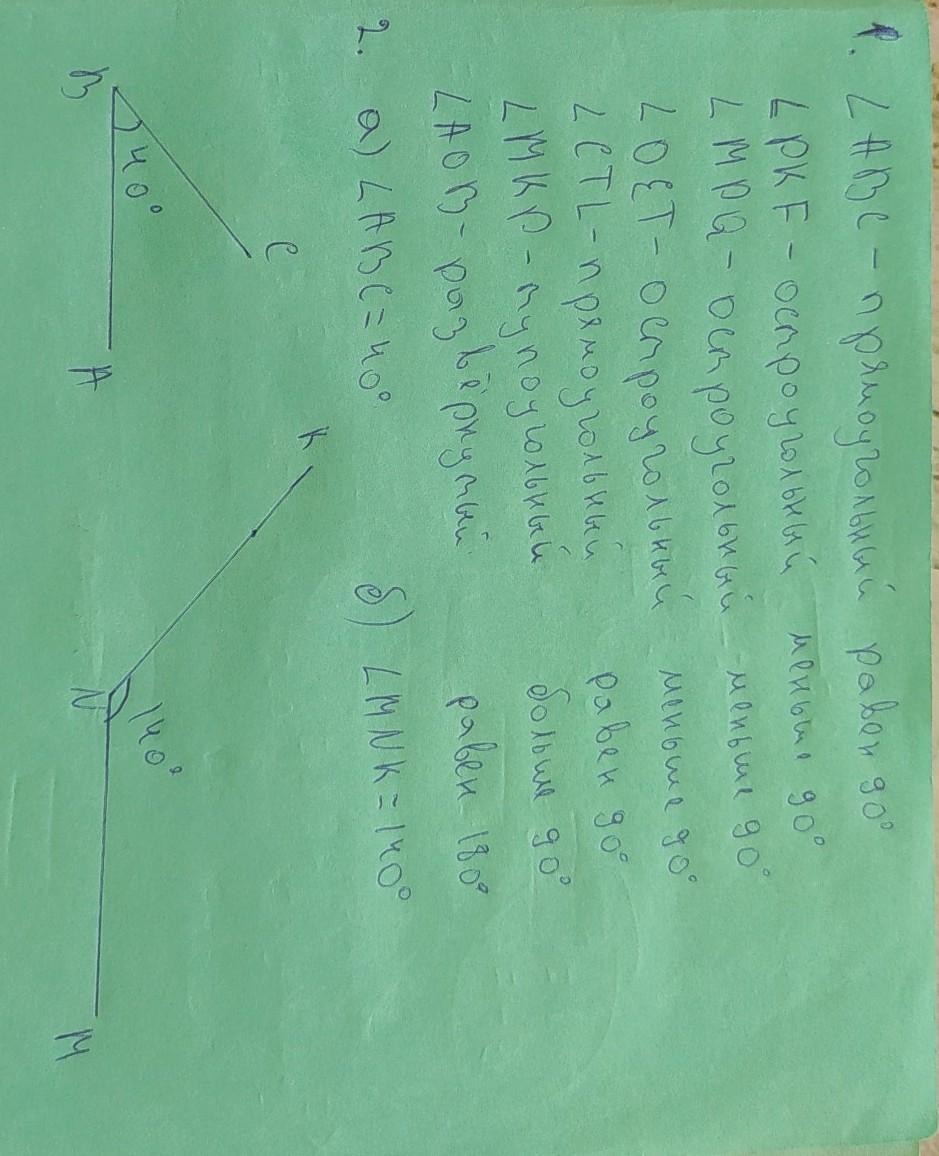 1.
∠ABC - прямоугольный равен 90°
∠PKF - остроугольный меньше 90°
∠MPQ - остроугольный меньше 90°
∠OET - остроугольный меньше 90°
∠CTL - прямоугольный равен 90°
∠MKP - тупоугольный больше 90°
∠AOB - развёрнутый равен 180°
2. а) ∠ABC = 40° б) ∠MNK = 140°
C
40°
B A
K
140°
N M